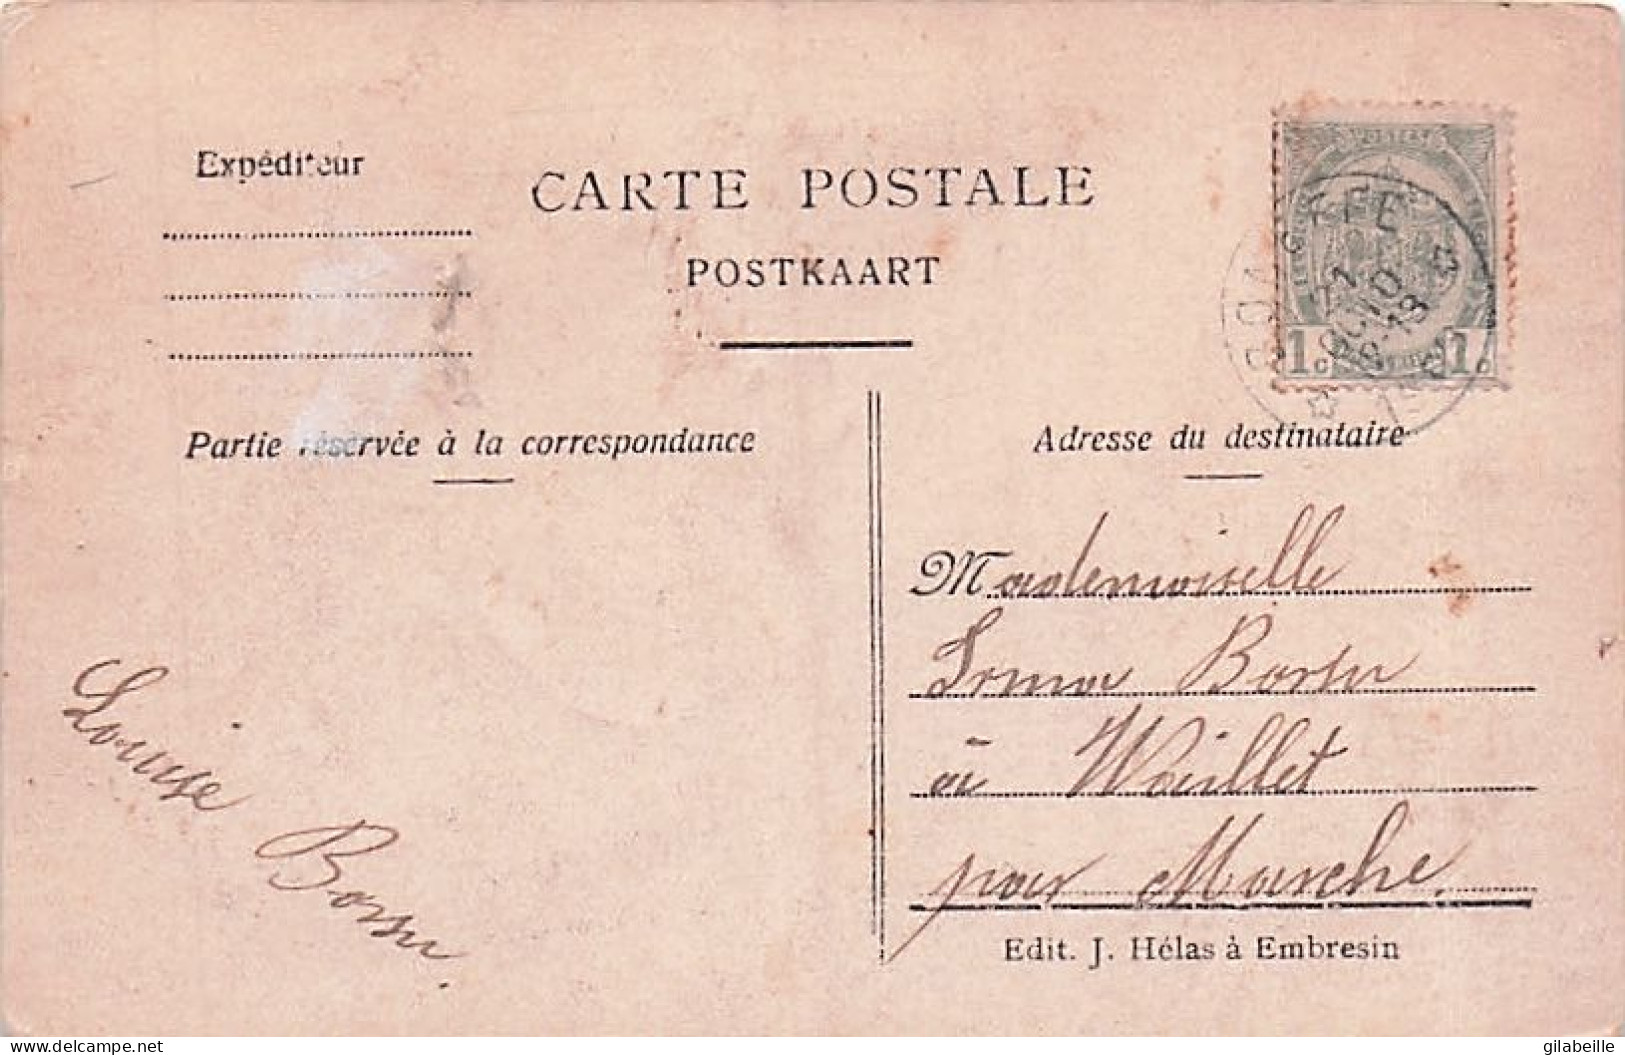 Expéditeur
CARTE POSTALE
POSTKAART
1c 1c
Partie réservée à la correspondance
Adresse du destinataire
Mademoiselle
Irma Borsu
à Waillet
par Marche.
Louise
Borsu.
Edit. J. Hélas à Embresin
delcampe.net
gilabeille